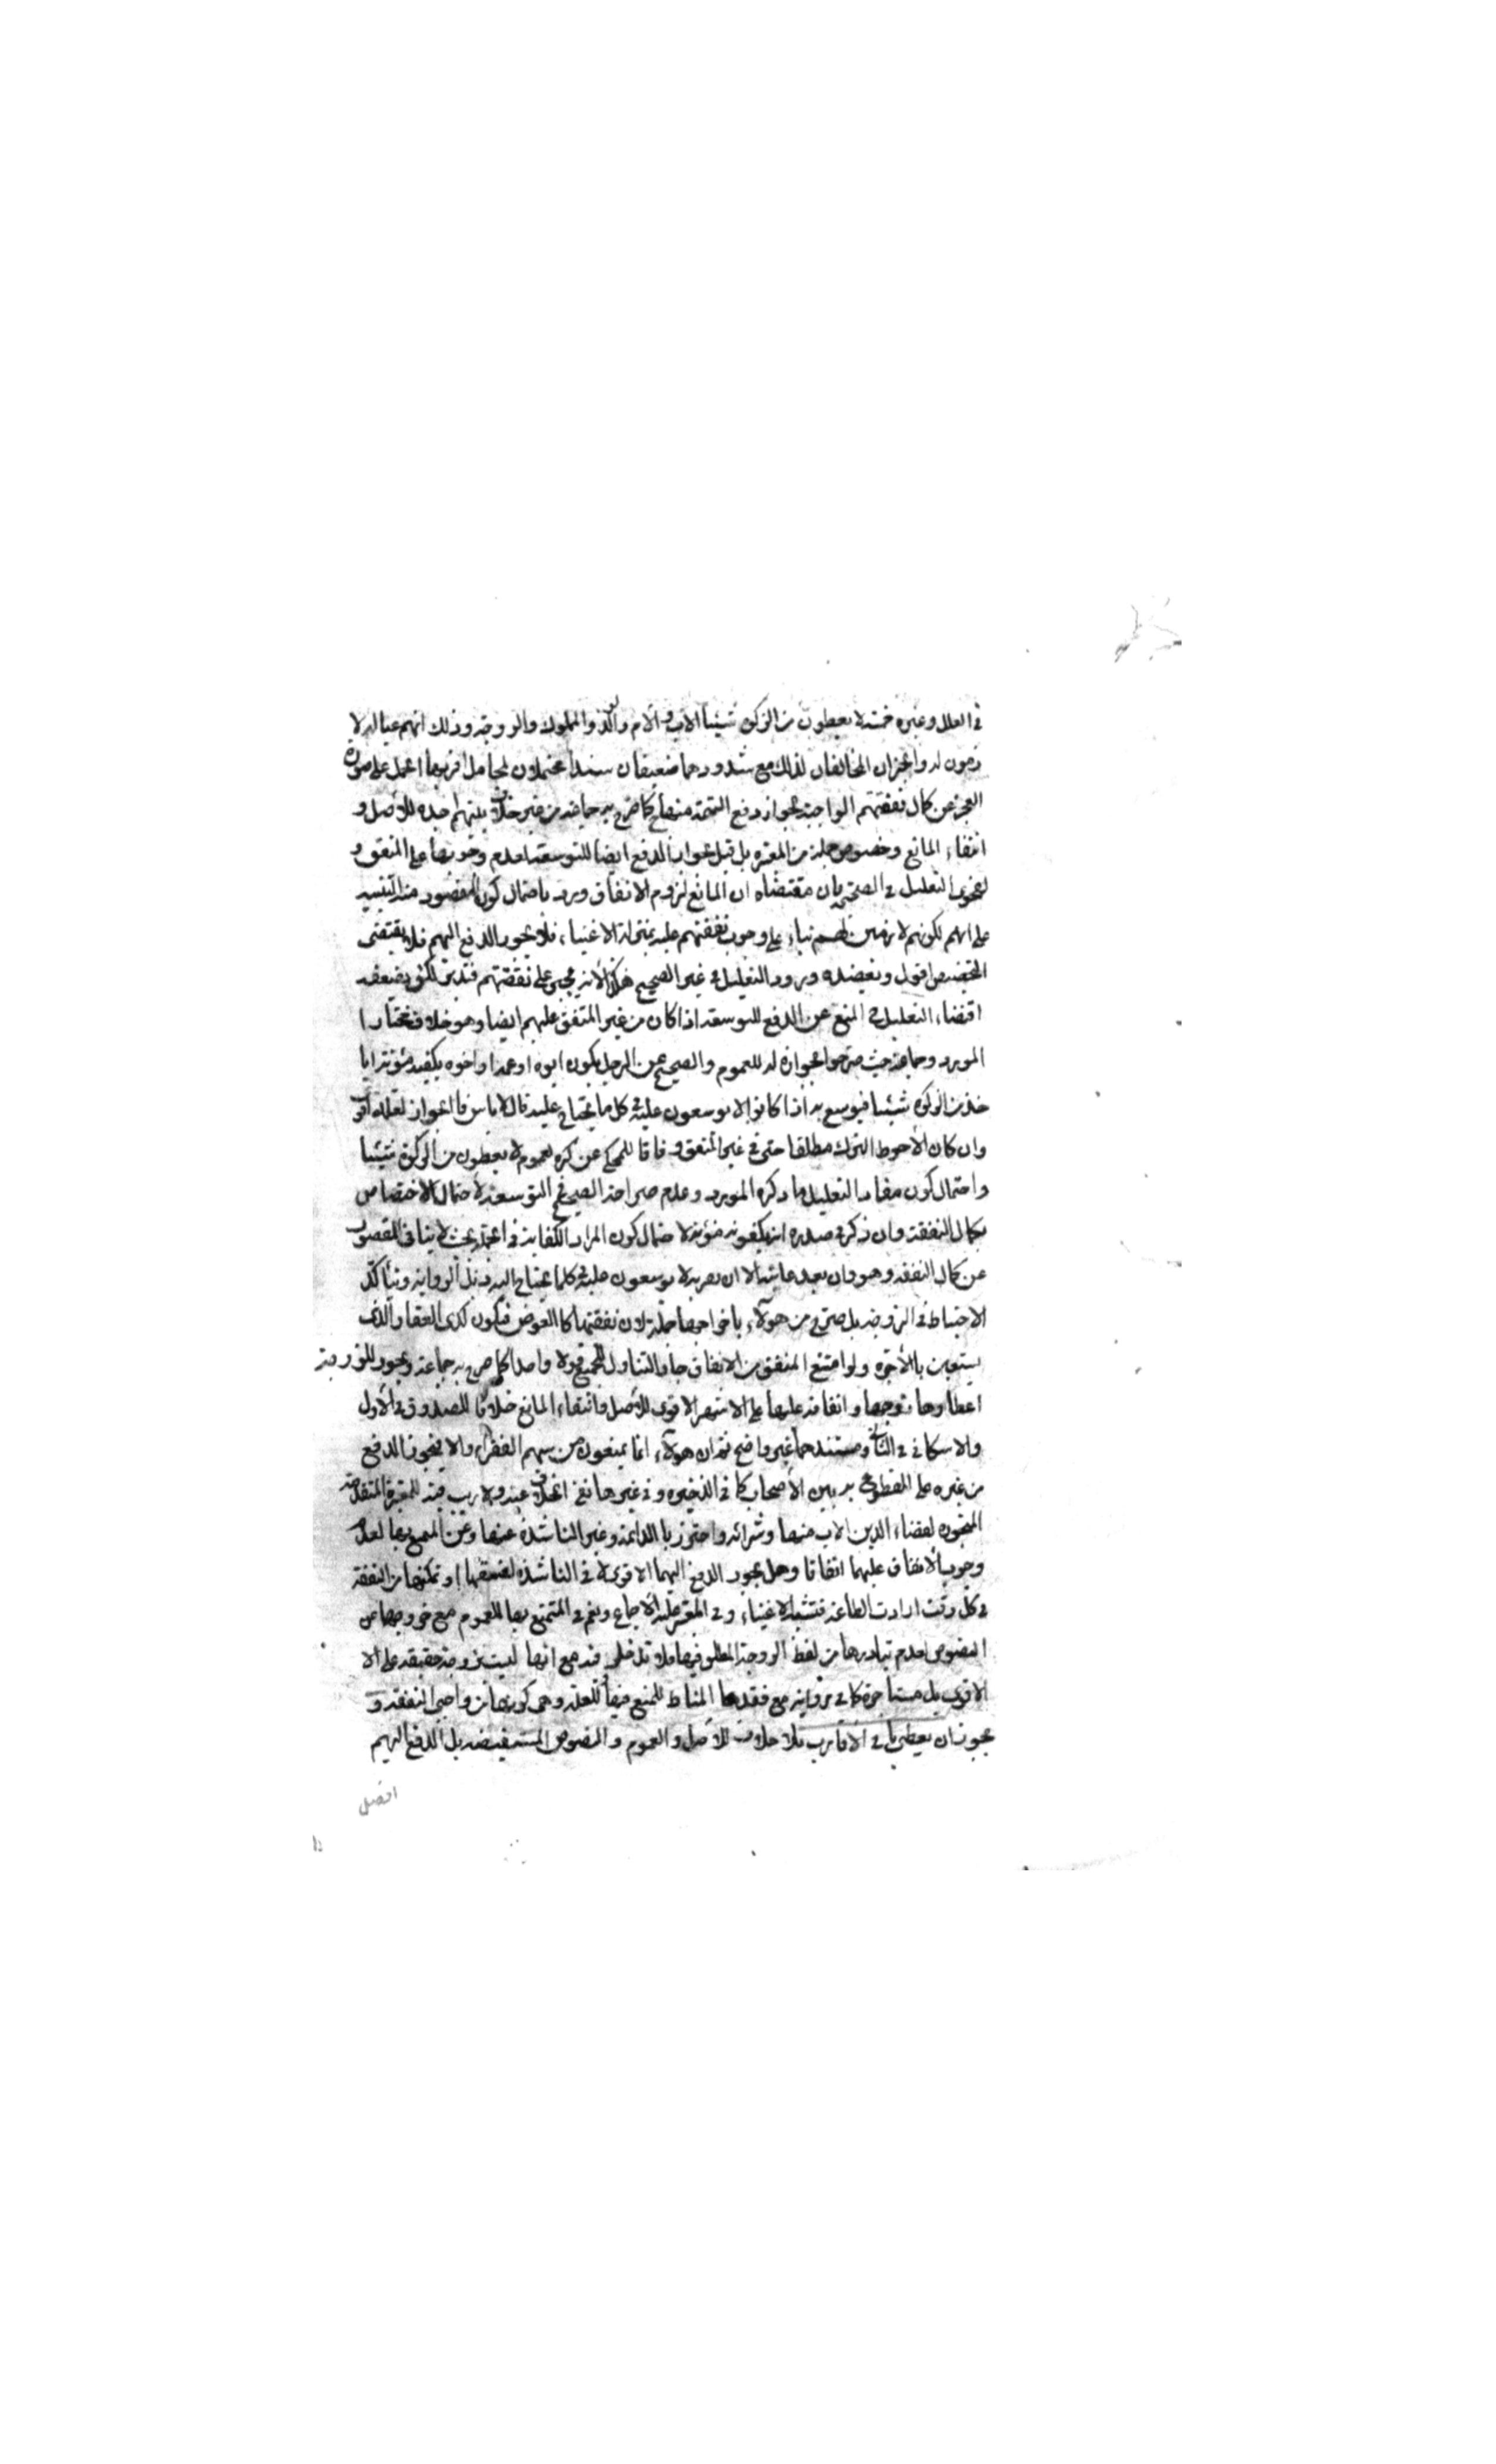 في العلل وغيره خمسة لا يعطون من الزكوة شيئا الاب والام والولد والمملوك والزوجة وذلك انهم عياله لا
زمون له والخبران المخالفان لذلك مع شذوذهما ضعيفان سندا محتملان لمحامل اقربها الحمل على صورة
العجز عن كمال نفقتهم الواجبة لجواز دفع التتمة منها كما صرح به جماعة من غير خلاف بينهم اجده للاصل و
انتفاء المانع وخصوص جملة من المعتبرة بل قيل بجواز الدفع ايضا للتوسعة لعدم وجوبها على المنفق و
التعليل في الصحيح بان مقتضاه ان المانع لزوم الانفاق ويرد باحتمال كون المقصود منه التنبيه
على انهم لكونهم لازمين له بناء على وجوب نفقتهم عليه بمنزلة الاغنياء فلا يجوز الدفع اليهم فلا يقتضي
التخصيص اقول ويعضده ورود التعليل في غير الصحيح هكذا لانه يجبر على نفقتهم فتدبر لكن يضعفه
اقتضاء التعليل المنع عن الدفع للتوسعة اذا كان من غير المنفق عليهم ايضا وهو خلاف مختار
المورد وجماعة حيث صرحوا بجوازه له للعموم والصحيح عن الرجل يكون ابوه او عمه او اخوه يكفيه مؤنته ايا
خذ من الزكوة شيئا فيوسع به اذا كانوا لا يوسعون عليه في كل ما يحتاج عليه قال لا باس فالجواز لعله اقوى
وان كان الاحوط الترك مطلقا حتى في غير المنفق وفاقا للمحكي عن كره لعموم لا يعطون من الزكوة شيئا
واحتمال كون مفاد التعليل ما ذكره المورد وعدم صراحة الصحيح في التوسعة لاحتمال الاختصاص
بكمال النفقة وان ذكر في صدره انه يكفونه مؤنته لاحتمال كون المراد الكفاية في الجملة بحيث لا ينافي القصور
عن كمال النفقة وهو وان بعد غايته الا ان يقربه لا يوسعون عليه في كلما يحتاج اليه في ذيل الرواية ويتأكد
الاحتياط في الزوجة بل صرح من هؤلاء باخراجها جملة لان نفقتها كالعوض فتكون كذى العقار والذي
يستعين بالاجرة ولو امتنع المنفق من الانفاق جاز التناول للجميع قولا واحدا كما صرح به جماعة ويجوز للزوجة
اعطاؤها زوجها وانفاقه عليها على الاشهر الاقوى للاصل وانتفاء المانع خلافا للصدوق في الاول
والاسكافي في الثاني ومستندهما غير واضح ثم ان هؤلاء انما يمنعون من سهم الفقراء والا فيجوز الدفع
من غيره على المقطوع به بين الاصحاب كما في الذخيرة وفي غيرها نفي الخلاف عنه ولا ريب فيه للمعتبرة المتقدمة
المجوزة لقضاء الدين الاب منها وشرائه واحترز بالدائمة وغير الناشزة عنها وعن المتمتع بها لعدم
وجوب الانفاق عليهما اتفاقا وهل يجوز الدفع اليهما الاقوى لا في الناشزة لفسقها او تمكنها من النفقة
في كل وقت ارادت الطاعة فتشبه الاغنياء وفي المعتبر عليه الاجماع ونعم في المتمتع بها للعموم مع خروجها عن
النصوص لعدم تبادرها من لفظ الزوجة المطلق فيها فلا تدخل فيه مع انها ليست زوجة حقيقة على الا
الاقرب بل مستاجرة كما في رواية مع فقدها المناط للمنع فيها للعلة وهي كونها من واجبي النفقة و
يجوز ان يعطى باقي الاقارب بلا خلاف للاصل والعموم والنصوص المستفيضة بل الدفع اليهم
افضل